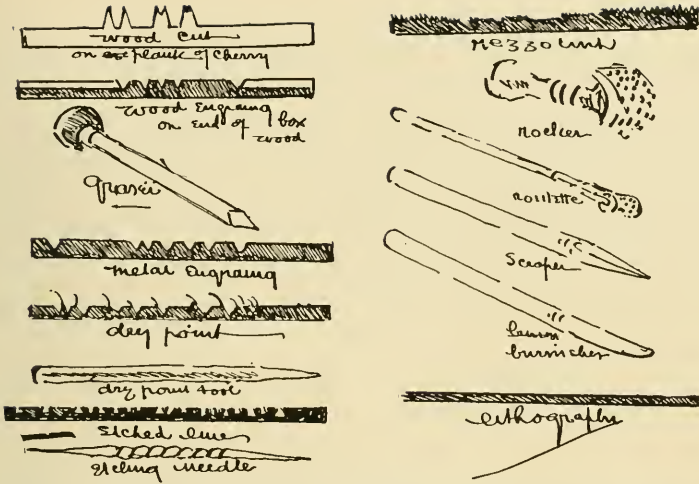 wood cut
on plank of cherry
wood Engraing
on End of box
wood
graver
metal Engraing
dry point
dry point tool
Etched line
Etching Needle
Mezzotint
rocker
roulette
Scraper
burnisher
Lithography